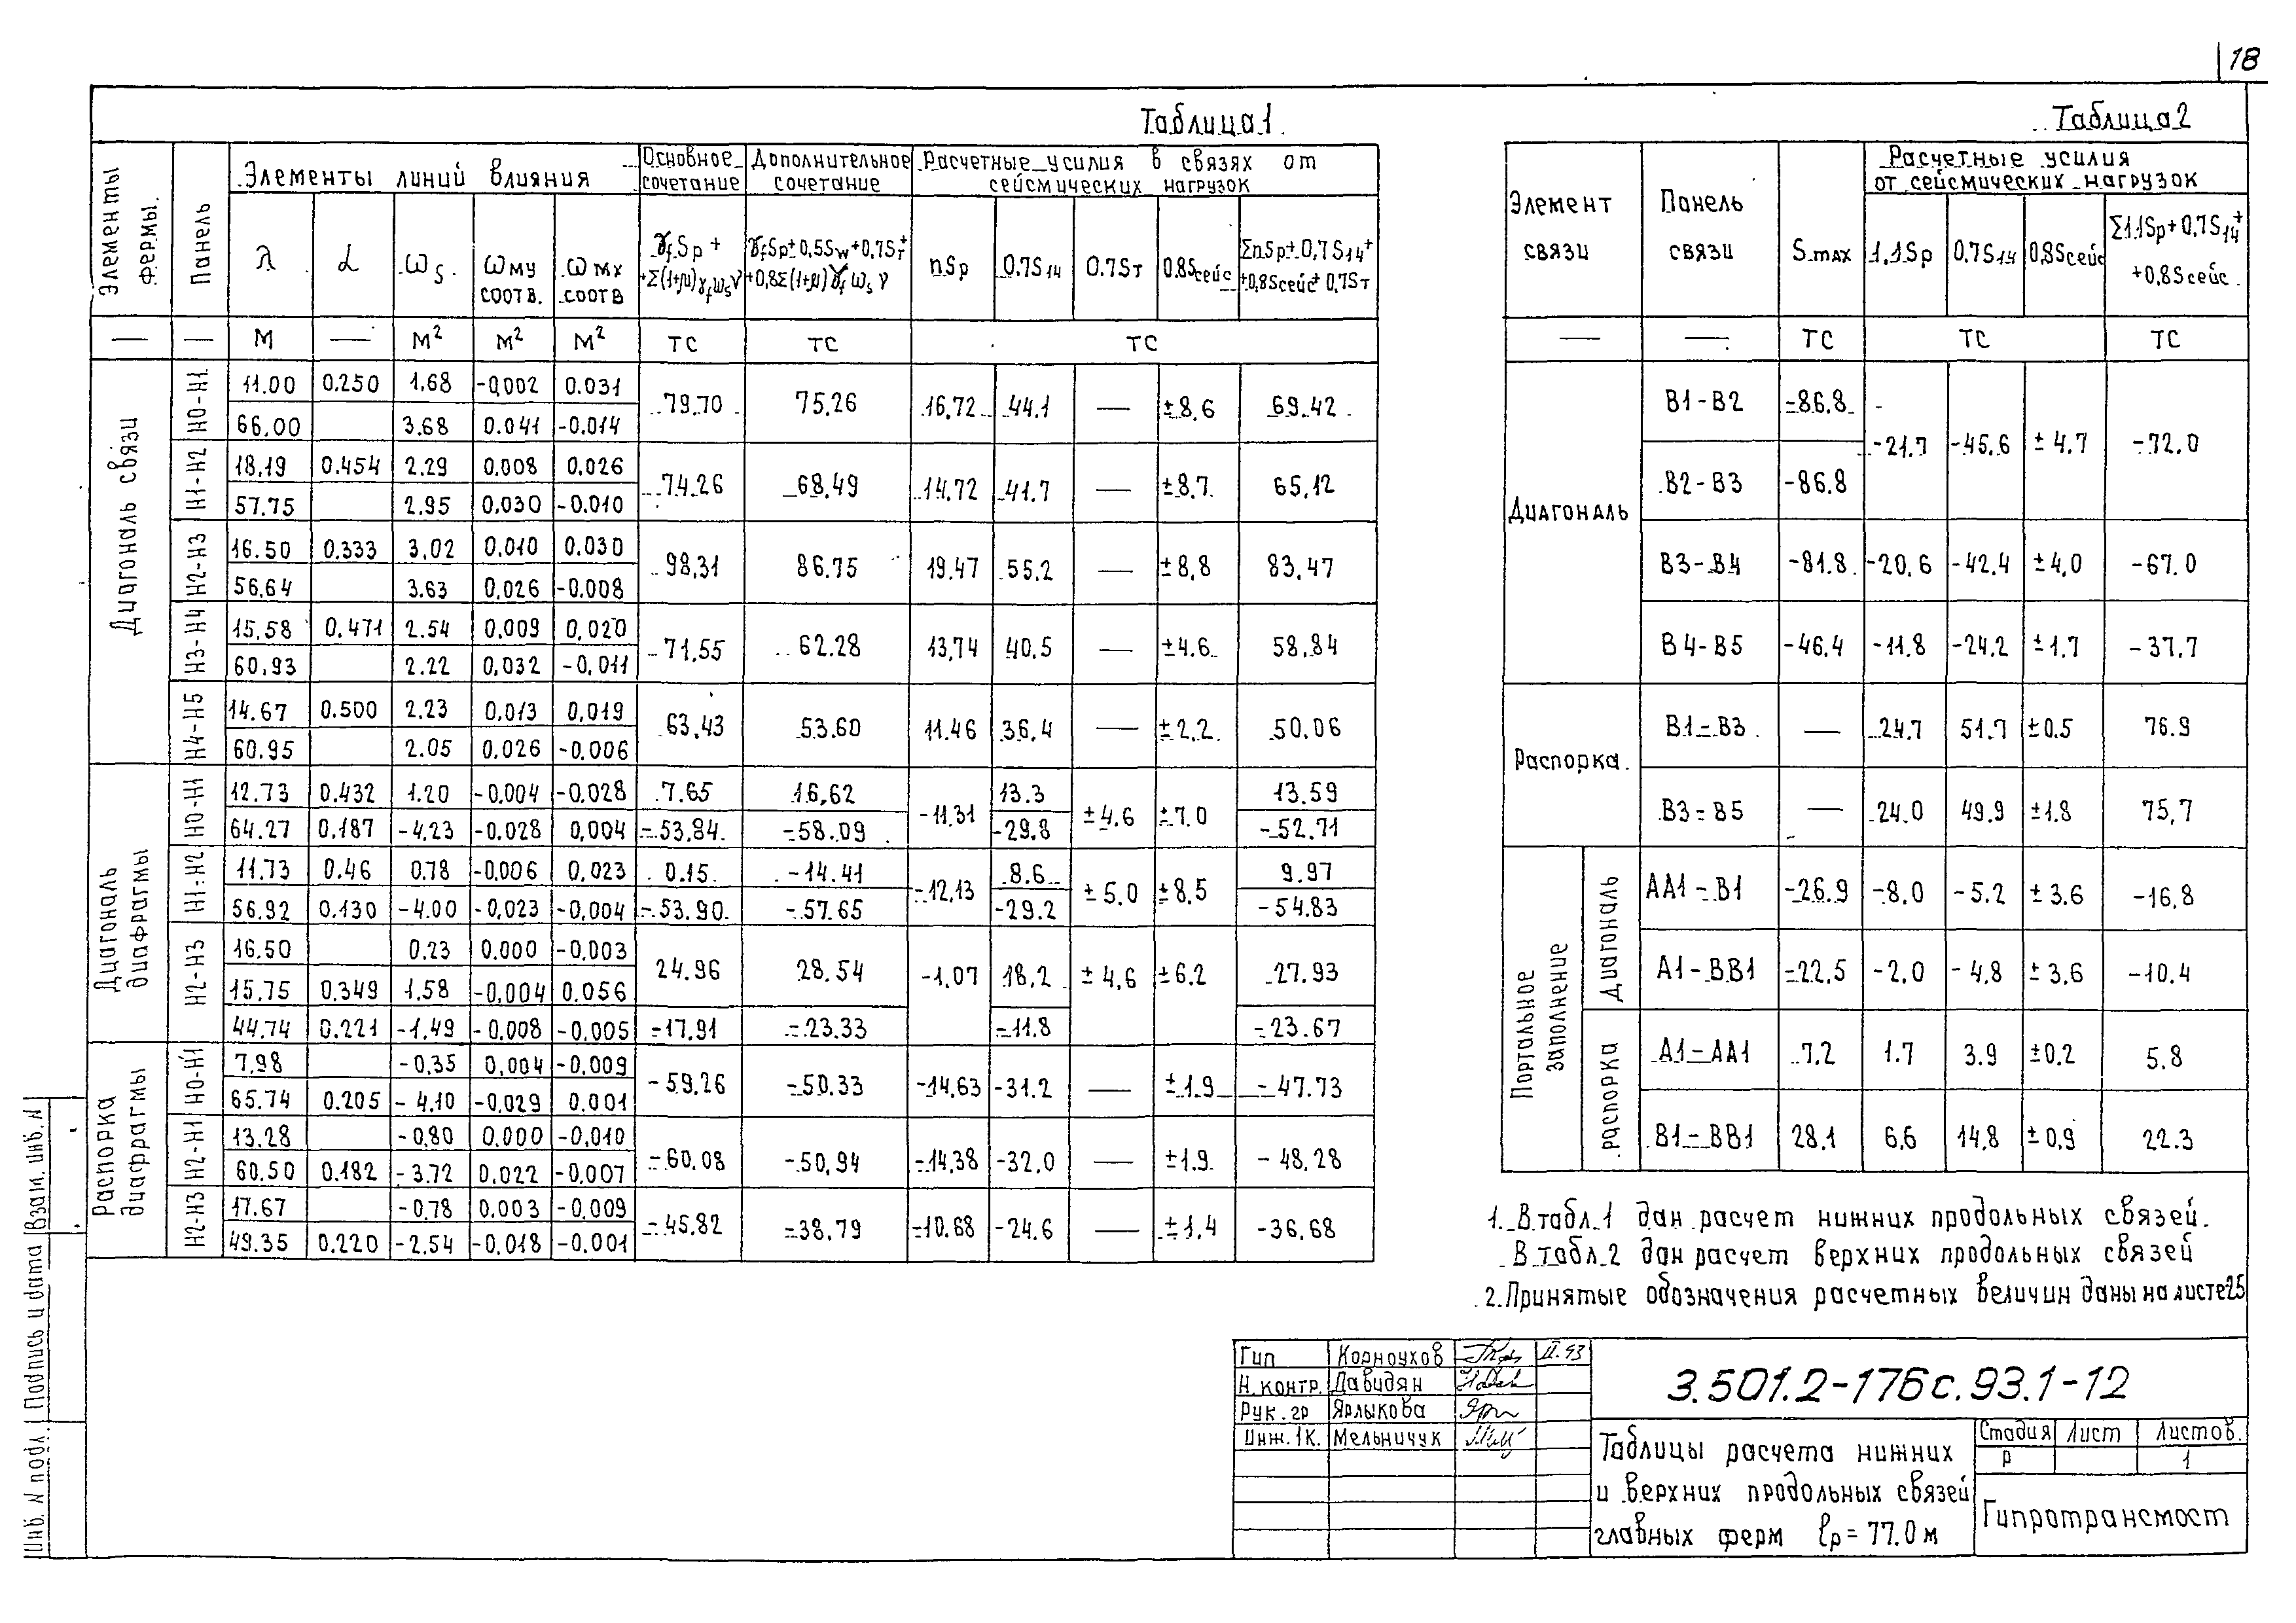 18
Таблица 1.
Элементы фермы.
Панель
Элементы линий влияния
Основное сочетание
Дополнительное сочетание
Расчетные усилия в связях от сейсмических нагрузок
λ α ωs ωму соотв. ωмх соотв γfSp + +Σ(1+μ)γfωsν γfSp+0,5Sw+0,7Sт+ +0,8Σ(1+μ)γfωsν nSp 0.7S14 0.7Sт 0.8Sсейс ΣnSp+0,7S14+ +0,8Sсейс+0,7Sт
— — м — м² м² м² тс тс тс
Диагональ связи
Н0-Н1 11.00 0.250 1.68 -0,002 0.031 79.70 75.26 16,72 44.1 — ±8,6 69.42
66.00 3.68 0.041 -0.014
Н1-Н2 18.19 0.454 2.29 0.008 0,026 74.26 68,49 14,72 41.7 — ±8,7 65,12
57.75 2.95 0,030 -0.010
Н2-Н3 16.50 0.333 3,02 0,010 0.030 98,31 86.75 19.47 55,2 — ±8,8 83,47
56,64 3.63 0,026 -0.008
Н3-Н4 15,58 0,471 2.54 0,009 0,020 71,55 62.28 13,74 40,5 — ±4.6 58,84
60,93 2.22 0,032 -0,011
Н4-Н5 14.67 0.500 2,23 0,013 0,019 63,43 53.60 11.46 36,4 — ±2,2 50,06
60.95 2.05 0,026 -0,006
Диагональ диафрагмы
Н0-Н1 12.73 0.432 1.20 -0,004 -0,028 7.65 16,62 -11,31 13.3 ±4,6 ±7,0 13.59
64.27 0,187 -4,23 -0,028 0,004 -53,84 -58.09 -29.8 -52.71
Н1-Н2 11,73 0.46 0.78 -0,006 0,023 0.15 -14.41 -12,13 8.6 ±5,0 ±8,5 9.97
56.92 0.130 -4.00 -0,023 -0,004 -53.90 -57.65 -29.2 -54.83
Н2-Н3 16.50 0.23 0.000 -0,003 24.96 28.54 -1,07 18,2 ±4,6 ±6.2 27.93
15.75 0,349 1.58 -0,004 0.056
44.74 0.221 -1,49 -0,008 -0,005 -17.91 -23.33 -11.8 -23.67
Распорка диафрагмы
Н0-Н1 7,98 -0,35 0,004 -0,009 -59,26 -50.33 -14,63 -31.2 — ±1.9 -47.73
65.74 0.205 -4.10 -0,029 0.001
Н2-Н1 13.28 -0,80 0.000 -0,010 -60,08 -50,94 -14,38 -32.0 — ±1.9 -48,28
60.50 0.182 -3.72 0.022 -0,007
Н2-Н3 17.67 -0,78 0.003 -0,009 -45.82 -38,79 -10.68 -24.6 — ±1,4 -36,68
49.35 0.220 -2,54 -0,018 -0,001
Таблица 2
Элемент связи
Панель связи
Smax
Расчетные усилия от сейсмических нагрузок
1,1Sp 0.7S14 0,8Sсейс Σ1.1Sp+0,7S14+ +0,8Sсейс.
— — тс тс тс
Диагональ
В1-В2 -86.8 -21.7 -45.6 ±4,7 -72.0
В2-В3 -86.8
В3-В4 -81.8 -20,6 -42.4 ±4,0 -67.0
В4-В5 -46.4 -11.8 -24.2 ±1.7 -37.7
Распорка.
В1-В3 — 24.7 51.7 ±0.5 76.9
В3-В5 — 24.0 49.9 ±1.8 75,7
Портальное заполнение
Диагональ
АА1-В1 -26.9 -8,0 -5.2 ±3.6 -16,8
А1-ВВ1 -22,5 -2.0 -4,8 ±3,6 -10.4
распорка
А1-АА1 7,2 1.7 3.9 ±0.2 5.8
В1-ВВ1 28,1 6,6 14,8 ±0,9 22.3
1. В табл.1 дан расчет нижних продольных связей.
В табл.2 дан расчет верхних продольных связей
2. Принятые обозначения расчетных величин даны на листе 25
Гип Корноухов II.93
Н.контр. Давидян
Рук.гр Ярлыкова
Инж.1К. Мельничук
3.501.2-176с.93.1-12
Таблицы расчета нижних
и верхних продольных связей
главных ферм ℓр=77.0м
Стадия Лист Листов.
Р 1
Гипротрансмост
Инв. N подл. Подпись и дата Взам. инв. N